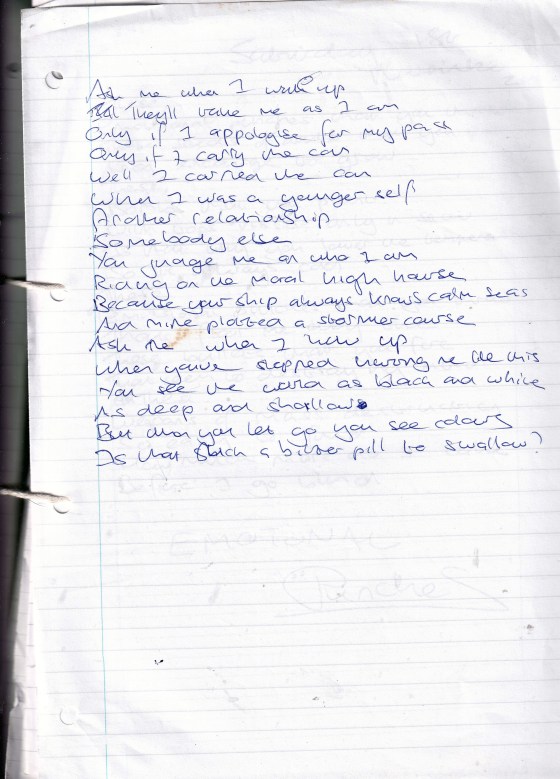 Ask me when I wake up
But They'll take me as I am
Only if I appologise for my past
Only if I carry the can
Well I carried the can
When I was a younger self
Another relationship
Somebody else
You judge me on who I am
Riding on the moral high hawse
Because your ship always knows calm seas
And mine plotted a stormier course
Ask me when I wake up
When you've stopped hurting me like this
You see the world as black and white
As deep and shallow
But when you let go you see colours
Is that such a bitter pill to swallow?
EMOTIONAL